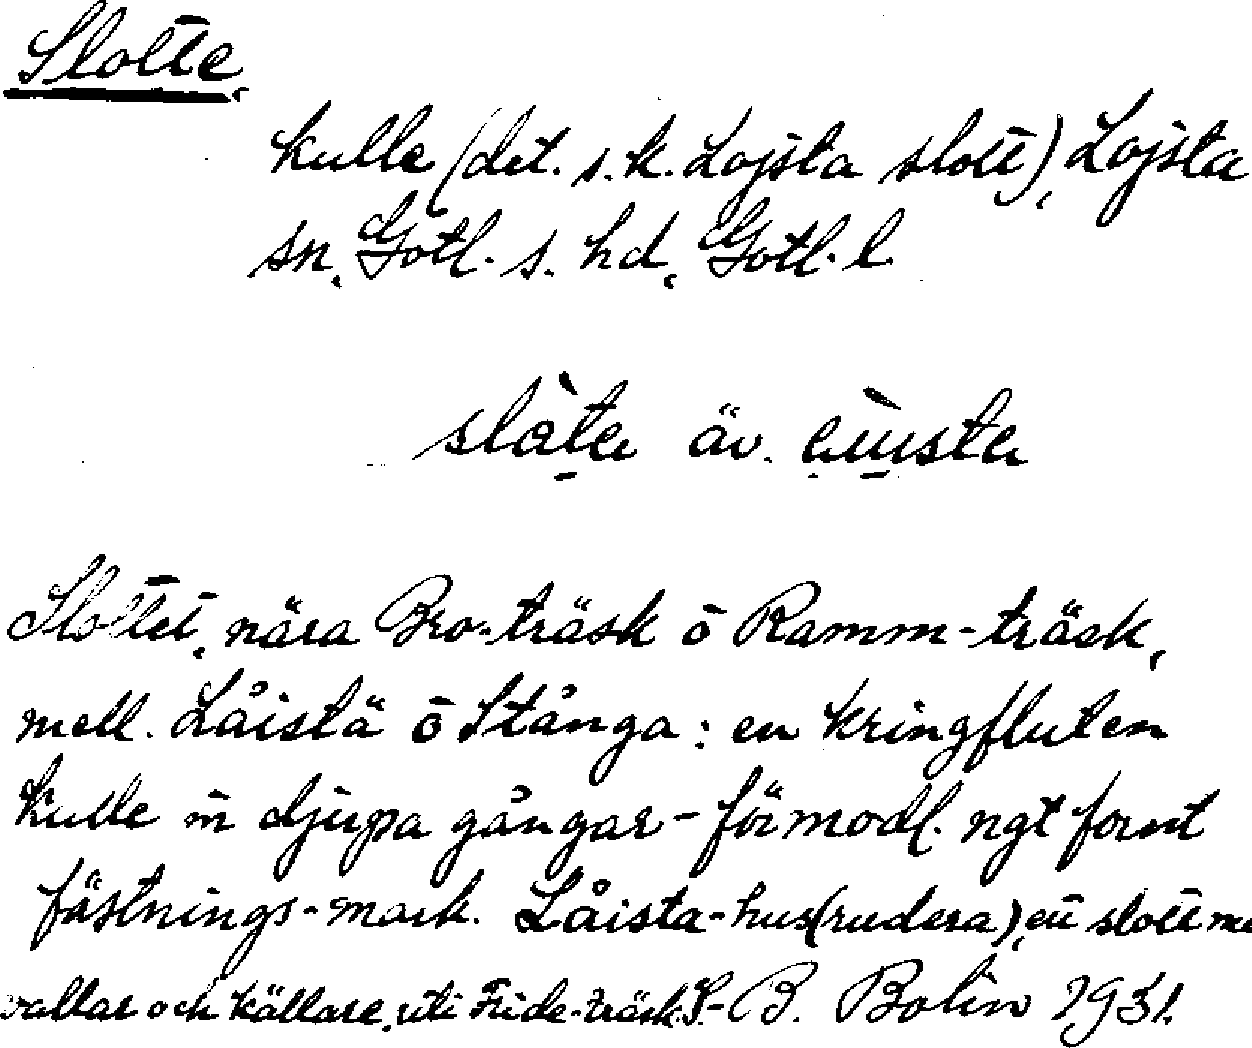 Slotte,
kulle (det. s.k. Lojsta slott), Lojsta
sn, Gotl. s. hd, Gotl. l.
slåta äv.
Slottet, nära Bro-träsk ō Ramm-träsk,
mell. Låistä ō Stånga: en kringfluten
kulle m̄ djupa gångar - förmodl. ngt fornt
fästnings-mark. Låista-hus (rudera), ett slott me
vallar och källare, uti Fride-träsk. S-B. Bolin 1931.